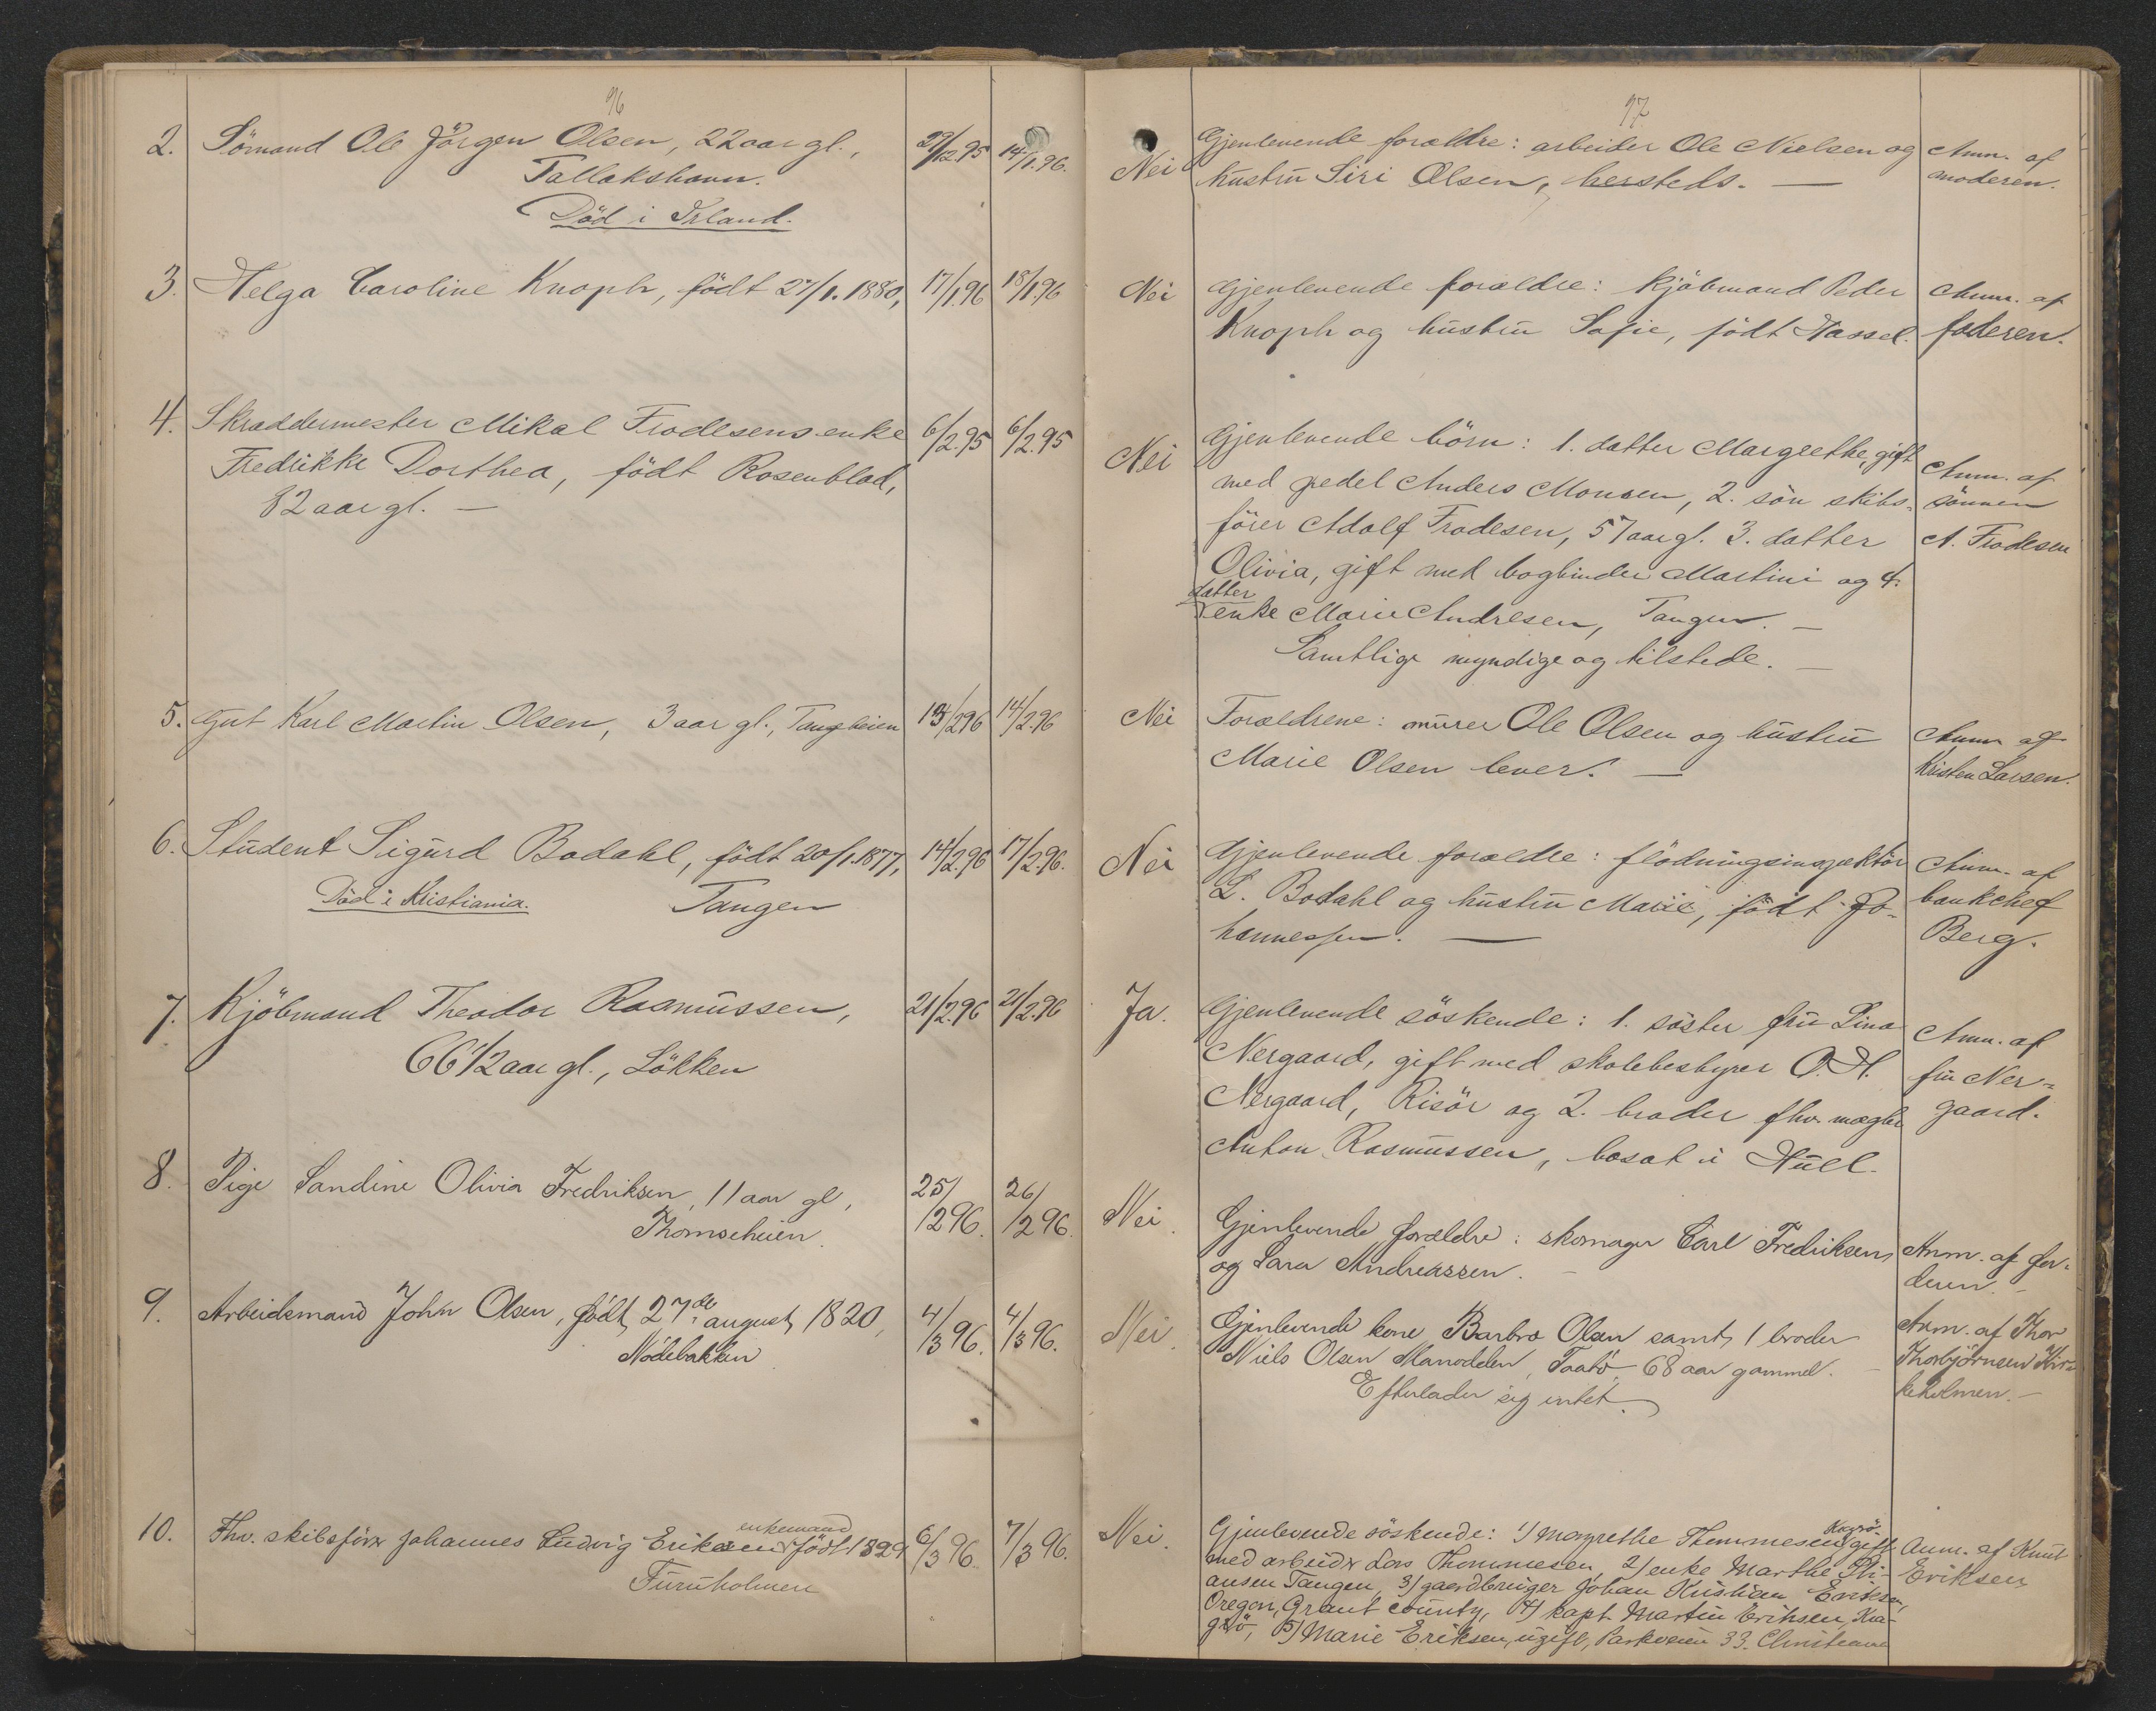 96
2. Sömand Ole Jörgen Olsen, 22 aar gl.,
Tallakshavn.
Död i Irland.
29/12.95 14/1.96.
3. Helga Caroline Knoph, född 27/1. 1880, 17/1.96 18/1.96
4. Skræddermester Mikal Frodesens enke 6/2.95 6/2.95
Fredrikke Dorthea, född Rosenblad,
82 aar gl. —
5. Gut Karl Martin Olsen, 3 aar gl., Tangheien 13/2.96 14/2.96
6. Student Sigurd Bodahl, född 20/1.1877, 14/2.96 17/2.96.
Död i Kristiania. Tangen
7. Kjöbmand Theodor Rasmussen, 21/2.96 21/2.96
66 1/2 aar gl., Lökken
8. Pige Sandine Olivia Fredriksen, 11 aar gl, 25/2 96. 26/2 96.
Thomseheien.
9. Arbeidsmand John Olsen, född 27de august 1820, 4/3 96. 4/3 96.
Nödebakken
10. Fhv. skibsförer Johannes Ludvig Eriksen enkemand född 1829 6/3 96. 7/3 96.
Furuholmen
97
Nei Gjenlevende forældre: arbeider Ole Nielsen og
hustru Siri Olsen, hersteds. —
Anm. af
moderen.
Nei Gjenlevende forældre: kjöbmand Peder
Knoph og hustru Sofie, född Hassel.
Anm. af
faderen.
Nei Gjenlevende börn: 1. datter Margrethe, gift
med pedel Anders Monsen, 2. sön skibs-
förer Adolf Frodesen, 57 aar gl. 3. datter
Olivia, gift med bogbinder Martini og 4.
datter
enke Marie Andresen, Tangen. —
Samtlige myndige og tilstede. —
Anm. af
sönnen
A. Frodesen
Nei Forældrene: murer Ole Olsen og hustru
Marie Olsen lever. —
Anm af
Kristen Larsen.
Nei Gjenlevende forældre: flödningsinspektör
L. Bodahl og hustru Marie, född Jo-
hannessen. —
Anm. af
bankchef
Berg.
Ja. Gjenlevende söskende: 1. söster fru Lina
Nergaard, gift med skolebestyrer O. H.
Nergaard, Risör og 2. broder fhv. mægler
Anton Rasmussen, bosat i Hull.
Anm. af
fru Ner-
gaard.
Nei. Gjenlevende forældre: skomager Carl Fredriksen
og Sara Andreassen. —
Anm. af fa-
deren. —
Nei. Gjenlevende kone Barbro Olsen samt 1 broder
Niels Olsen Manodden, Taatö 68 aar gammel. —
Efterlader sig intet.
Anm. af Thor
Thorbjörnsen Kir-
keholmen. —
Nei. Gjenlevende söskende: 1) Margrethe Thommesen Kragrö gift
med arbeider Lars Thommesen, 2) enke Marthe
ansen Tangen, 3) gaardbruger Johan Kristian Eriksen,
Oregon, Grant county, 4) kapt. Martin Eriksen, Kra-
gerö, 5) Marie Eriksen, ugift, Parkveien 33. Christiania
Anm. af Knut
Eriksen